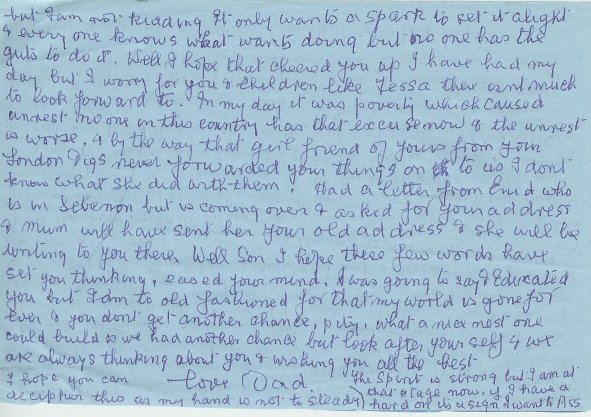 but I am not kidding it only wants a spark to set it alight
& every one knows what wants doing but no one has the
guts to do it. Well I hope that cheered you up I have had my
day but I worry for you & children like Tessa there isnt much
to look forward to. In my day it was poverty which caused
unrest no one in this country has that excuse now & the unrest
is worse, & by the way that girl friend of yours from your
London Digs never forwarded your things on to us I dont
know what she did with them! Had a letter from Enid who
is in Lebenon but is coming over & asked for your address
& Mum will have sent her your old address & she will be
writing to you there. Well Son I hope these few words have
set you thinking, eased your mind, I was going to say Educated
you but I am to old fashioned for that my world is gone for
Ever & you dont get another chance, pity, what a nice nest one
could build if we had another chance but look after your self & we
are always thinking about you & wishing you all the best
Love Dad.
I hope you can
decipher this as my hand is not to steady
The Spirit is strong but I am at
that stage now, if I have a
hard on its a sign I want to Piss